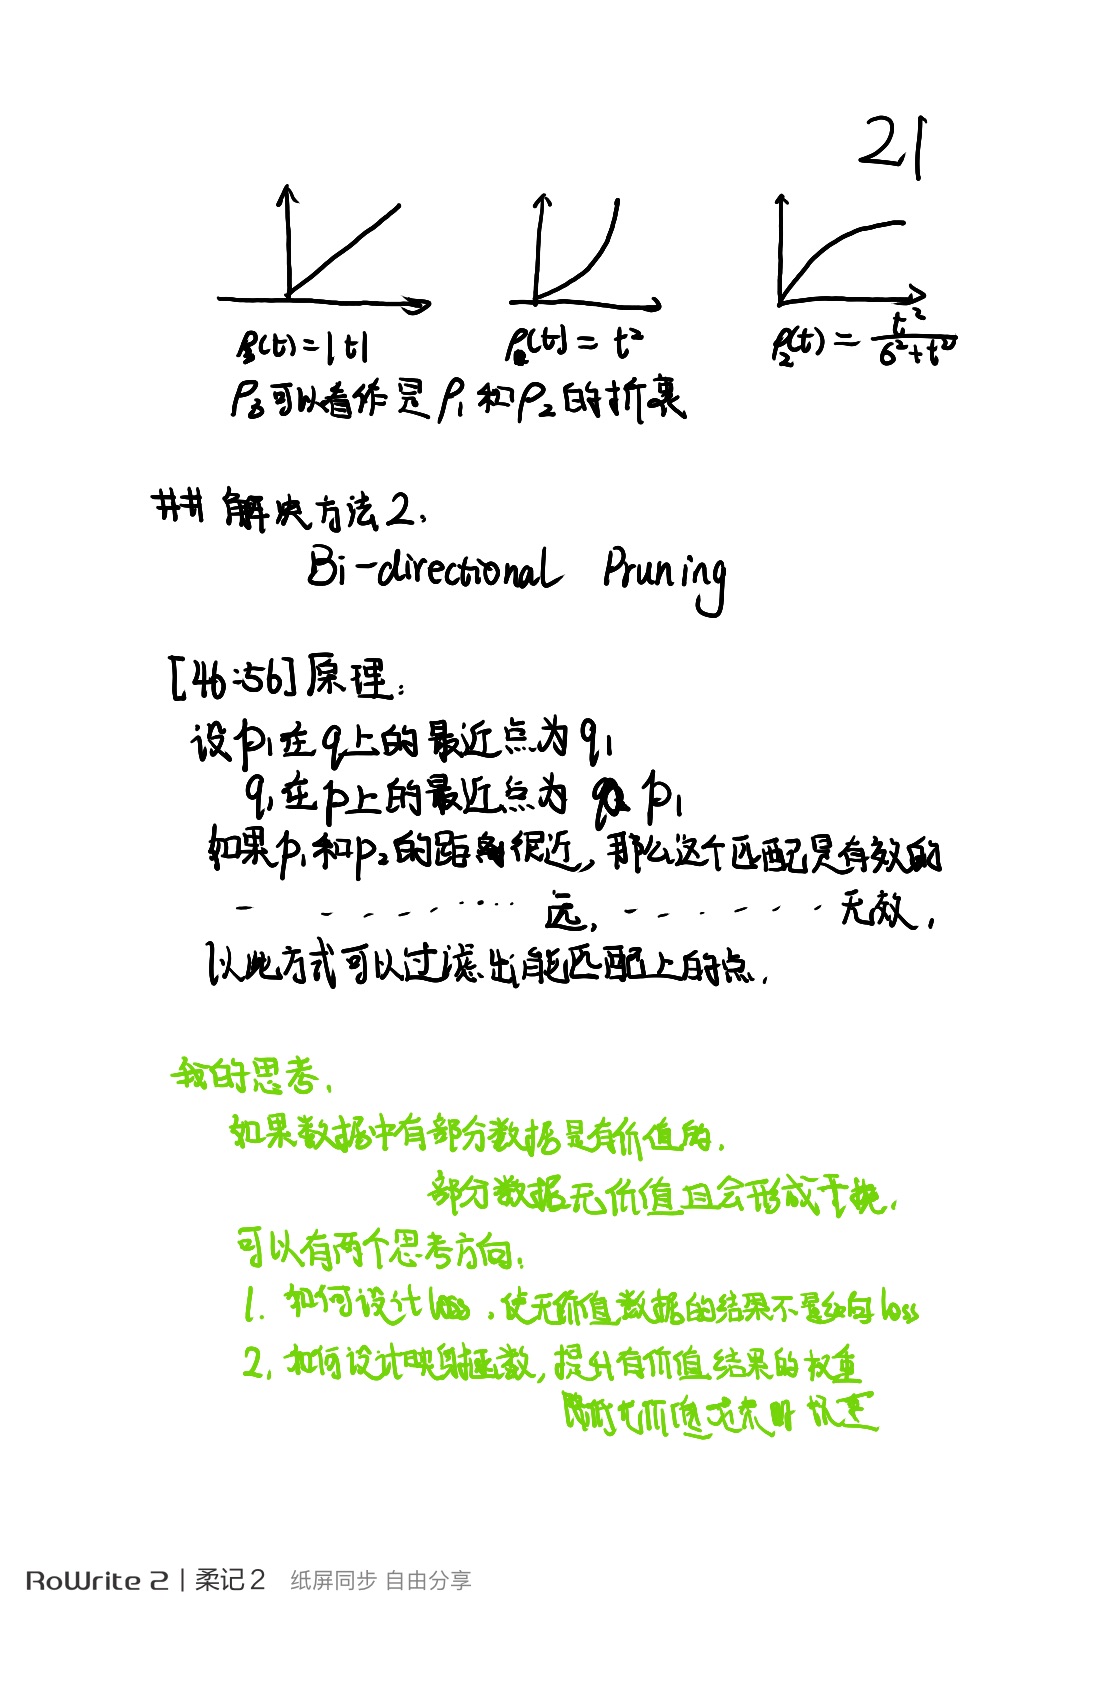 21
ρ₃(t)=|t|
ρ(t)= t²
ρ₂(t)= t²/(6²+t²)
ρ₃可以看作是ρ₁和ρ₂的折衷
## 解决方法2.
Bi-directional Pruning
[46:56]原理:
设p₁在q上的最近点为q₁
q₁在p上的最近点为 p₁
如果p₁和p₂的距离很近,那么这个匹配是有效的
远, 无效.
以此方式可以过滤出能匹配上的点.
我的思考.
如果数据中有部分数据是有价值的.
部分数据无价值且会形成干扰.
可以有两个思考方向.
1. 如何设计loss.使无价值数据的结果不影响loss
2. 如何设计映射函数,提升有价值结果的权重
降低无价值结果的权重
RoWrite 2 | 柔记 2 纸屏同步 自由分享